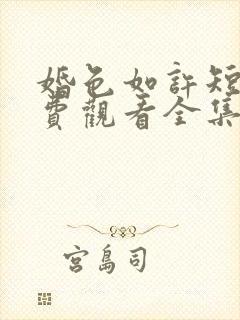 婚色如許短
費觀看全集
宮島司